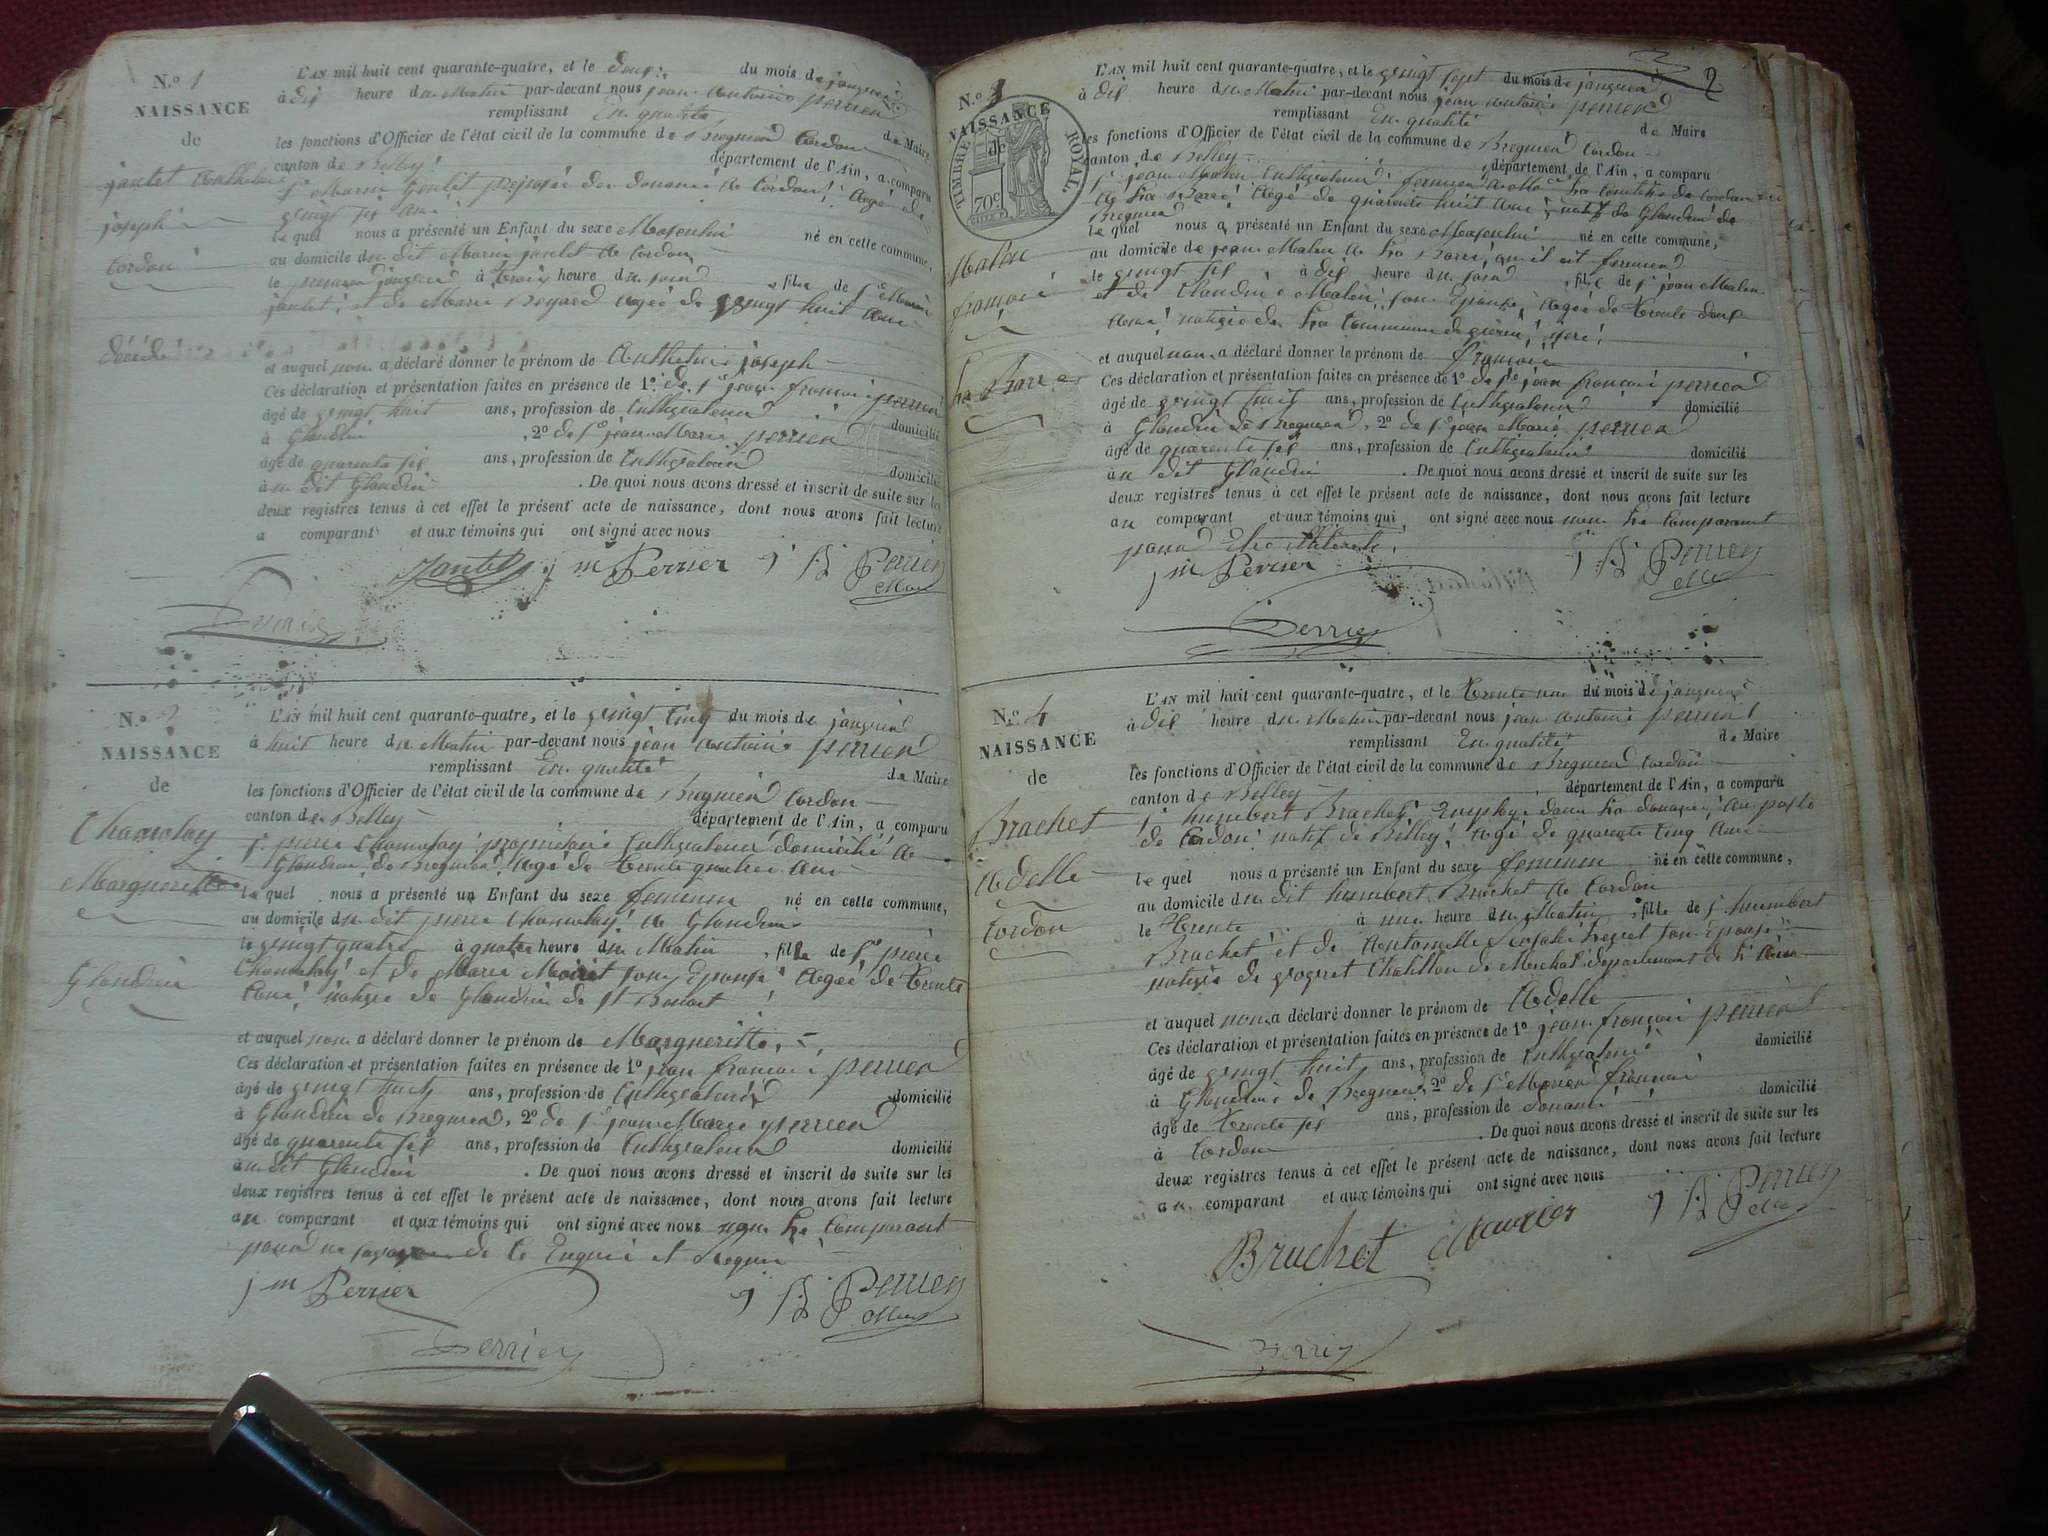 N.o 1
NAISSANCE
de
joseph
Cordon
décédé
L'AN mil huit cent quarante-quatre, et le deux du mois de janvier
à dix heure du Matin par-devant nous jean antoine perrier
remplissant En qualité de Maire
les fonctions d'Officier de l'état civil de la commune de Bregnier Cordon
canton de Belley département de l'Ain, a comparu
préposée des douanes de Cordon, Agé de
vingt six ans
le quel nous a présenté un Enfant du sexe Masculin né en cette commune,
au domicile du dit
le premier janvier à trois heure du soir, fils de
et de Marie agée de vingt huit ans
et auquel nous a déclaré donner le prénom de Anthelme joseph
Ces déclaration et présentation faites en présence de 1o de Sr jean françois perrier
âgé de vingt huit ans, profession de Cultivateur domicilié
à Glandieu, 2o de Sr jean Marie perrier
âgé de quarente six ans, profession de Cultivateur domicilié
au dit Glandieu. De quoi nous avons dressé et inscrit de suite sur les
deux registres tenus à cet effet le présent acte de naissance, dont nous avons fait lecture
a comparant et aux témoins qui ont signé avec nous
jm Perrier
Perrier
N.o 2
NAISSANCE
de
Margueritte
Glandieu
L'AN mil huit cent quarante-quatre, et le vingt cinq du mois de janvier
à huit heure du Matin par-devant nous jean antoine perrier
remplissant En qualité de Maire
les fonctions d'Officier de l'état civil de la commune de Bregnier Cordon
canton de Belley département de l'Ain, a comparu
Sr pierre propriétaire Cultivateur domicilié à
Glandieu de Bregnier, Agé de trente quatre ans
le quel nous a présenté un Enfant du sexe feminin né en cette commune,
au domicile du dit pierre de Glandieu
le vingt quatre à quatre heure du Matin, fille de Sr pierre
et de Marie son Epouse Agée de trente
ans, native de Glandieu de St Benoit
et auquel nous a déclaré donner le prénom de Margueritte
Ces déclaration et présentation faites en présence de 1o jean françois perrier
âgé de vingt huit ans, profession de Cultivateur domicilié
à Glandieu de Bregnier, 2o de Sr jean Marie perrier
âgé de quarente six ans, profession de Cultivateur domicilié
au dit Glandieu. De quoi nous avons dressé et inscrit de suite sur les
deux registres tenus à cet effet le présent acte de naissance, dont nous avons fait lecture
au comparant et aux témoins qui ont signé avec nous non le Comparant
pour ne de ce Enquis et Requis
jm Perrier
Perrier
2
N.o 3
NAISSANCE
de
TIMBRE ROYAL
70c
Malin
françois
La Barre
L'AN mil huit cent quarante-quatre, et le vingt sept du mois de janvier
à dix heure du Matin par-devant nous jean antoine perrier
remplissant En qualité de Maire
les fonctions d'Officier de l'état civil de la commune de Bregnier Cordon
canton de Belley, département de l'Ain, a comparu
Sr jean Malin Cultivateur fermier de
de La Barre Agé de quarente huit ans, natif de Glandieu de
Bregnier
le quel nous a présenté un Enfant du sexe Masculin né en cette commune,
au domicile de jean Malin de La Barre, fermier
le vingt six à dix heure du soir, fils de Sr jean Malin
et de Claudine Malin, son Epouse, Agée de trente deux
ans, native de La Commune de
et auquel nous a déclaré donner le prénom de françois
Ces déclaration et présentation faites en présence de 1o de Sr jean françois perrier
âgé de vingt huit ans, profession de Cultivateur domicilié
à Glandieu de Bregnier, 2o de Sr jean Marie perrier
âgé de quarente six ans, profession de Cultivateur domicilié
au dit Glandieu. De quoi nous avons dressé et inscrit de suite sur les
deux registres tenus à cet effet le présent acte de naissance, dont nous avons fait lecture
au comparant et aux témoins qui ont signé avec nous non le Comparant
pour
jm Perrier
Perrier
N.o 4
NAISSANCE
de
Brachet
Adelle
Cordon
L'AN mil huit cent quarante-quatre, et le trente un du mois de janvier
à dix heure du Matin par-devant nous jean antoine perrier
remplissant En qualité de Maire
les fonctions d'Officier de l'état civil de la commune de Bregnier Cordon
canton de Belley département de l'Ain, a comparu
Sr humbert Brachet, Employé dans La douane, au poste
de Cordon, natif de Belley, Agé de quarente cinq ans
le quel nous a présenté un Enfant du sexe feminin né en cette commune,
au domicile du dit humbert Brachet de Cordon
le trente à une heure du Matin, fille de Sr humbert
Brachet et de Antoinette son Epouse
native de Chatillon de département de L'Ain
et auquel nous a déclaré donner le prénom de Adelle
Ces déclaration et présentation faites en présence de 1o jean françois perrier
âgé de vingt huit ans, profession de Cultivateur domicilié
à Glandieu de Bregnier, 2o de Sr françois
âgé de trente six ans, profession de domicilié
à Cordon. De quoi nous avons dressé et inscrit de suite sur les
deux registres tenus à cet effet le présent acte de naissance, dont nous avons fait lecture
au comparant et aux témoins qui ont signé avec nous
Brachet
Perrier